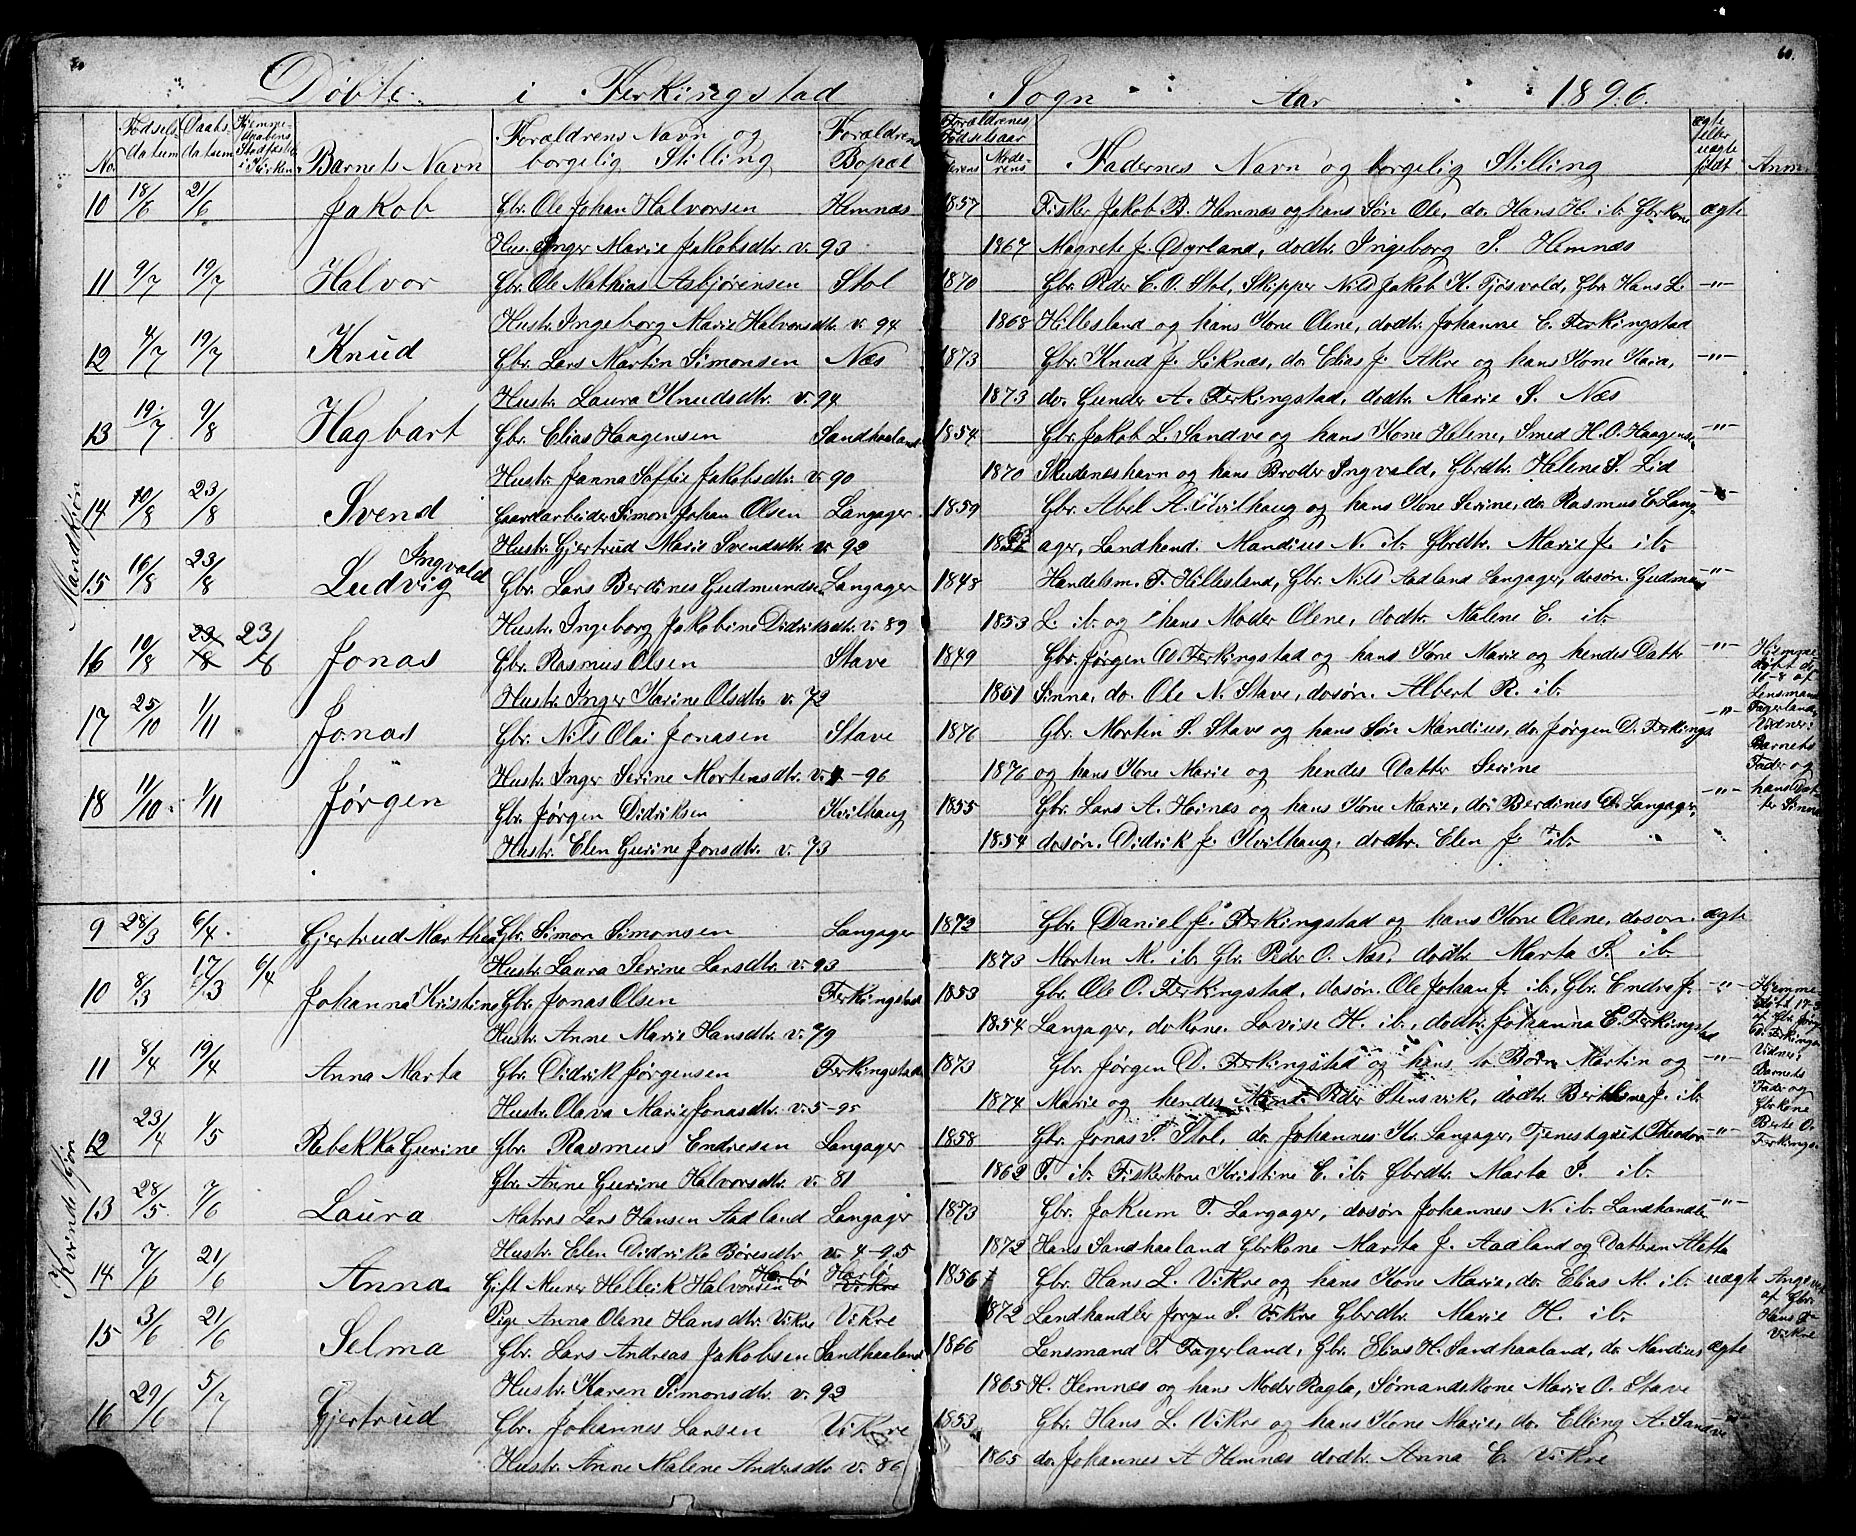 Døbte i Ferkingstad Sogn Aar 1896.
60.
No. Fødsels datum Daabs datum Hjemmedaabens Stadfæstelse i Kirken Barnets Navn Forældrens Navn og borgelig Stilling Forældrens Bopæl Forældrenes Fødselsaar Faderens Moderens Fadernes Navn og borgelig Stilling ægte eller uægte født Anm.
Mandkjøn
10 18/6 21/6 Jakob Gbr. Ole Johan Halvorsen Hemnæs 1857 Fisker Jakob B. Hemnæs og hans Søn Ole, do. Hans H. ib. Gbrkone ægte
Hus. Inger Marie Jakobsdtr. v. 93 1867 Magrete J. Dyrland, dodtr. Ingeborg S. Hemnæs
11 9/7 19/7 Halvor Gbr. Ole Mathias Asbjørensen Stol 1870 Gbr. Peder C. O. Stol, Skipper Nils Jakob K. Tjosvold, Gbr. Hans L. -"-
Hustr. Ingeborg Marie Halvorsdtr v. 94 1868 Hillesland og hans Kone Olene, dodtr. Johanne C. Ferkingstad
12 4/7 19/7 Knud Gbr. Lars Martin Simonsen Næs 1873 Gbr. Knud J. Liknæs, do. Elias J. Akre og hans Kone Kaia, -"-
Hustr. Laura Knudsdtr. v. 94 1873 do. Gunder A. Ferkingstad, dodtr. Marie S. Næs
13 19/7 9/8 Hagbart Gbr. Elias Haagensen Sandhaaland 1854 Gbr. Jakob L. Sandve og hans Kone Helene, Smed H. O. Haagens. -"-
Hustr. Janna Soffie Jakobsdtr. v. 90 1870 Skudeneshavn og hans Broder Ingvald, Gbrdtr. Helene S. Lid
14 10/8 23/8 Svend Gaardarbeider Simon Johan Olsen Langager 1859 Gbr. Abel A. Kvilhaug og hans Kone Serine, do. Rasmus E. Lang- -"-
Hustr. Gjertrud Marie Svendsdtr v. 92 ager, Landhand. Mandius N. ib. Gbrdtr. Marie J. ib.
15 16/8 23/8 Ludvig Ingvald Gbr. Lars Berdines Gudmundsen Langager 1848 Handelsm. T. Hillesland, Gbr. Nils Aadland Langager, dosøn. Gudmun -"-
Hustr. Ingeborg Jakobine Didriksdtr. v. 89 1853 L. ib. og hans Moder Olene, dodtr. Malene E. ib.
16 10/8 23/8 23/8 Jonas Gbr. Rasmus Olsen Stave 1849 Gbr. Jørgen D. Ferkingstad og hans Kone Marie og hendes Datter -"- Hjemmedøbt d. 16-8 af Lensmand Fagerland, Vidner: Barnets Fader og hans Datter Sinna
Hustr. Inger Karine Olsdtr. v. 72 1851 Sinna, do. Ole N. Stave, dosøn. Albert R. ib.
17 25/10 1/11 Jonas Gbr. Nils Olai Jonasen Stave 1876 Gbr. Morten S. Stave og hans Søn Mandius, do. Jørgen D. Ferkings -"-
Hustr. Inger Serine Mortensdtr. v. 4-96 1876 og hans Kone Marie og hendes Datter Serine
18 11/10 1/11 Jørgen Gbr. Jørgen Didriksen Kvilhaug 1855 Gbr. Lars A. Hoines og hans Kone Marie, do. Berdines D. Langager, -"-
Hustr. Elen Gurine Jonsdtr. v. 73 1854 dosøn. Didrik J. Kvilhaug. dodtr. Elen J. ib.
Kvindekjøn
9 28/3 6/4 Gjertrud Marthea Gbr. Simon Simonsen Langager 1872 Gbr. Daniel J. Ferkingstad og hans Kone Olene, dosøn. ægte
Hustr. Laura Serine Larsdtr. v. 93 1873 Morten M. ib. Gbr. Peder O. Næs, dodtr. Marta S. ib.
10 8/3 17/3 6/4 Johanna Kristine Gbr. Jonas Olsen Ferkingstad 1853 Gbr. Ole O. Ferkingstad, dosøn. Ole Johan J. ib., Gbr. Endre J. -"- Hjemmedøbt 17-3 af Gbr. Jørgen D. Ferkings. Vidner: Barnets Fader og Gbrkone Berte O. Ferkings.
Hustr. Anne Marie Hansdtr. v. 79 1854 Langager, do. kone. Lovise H. ib., dodtr. Johanna E. Ferkingstad
11 8/4 19/4 Anna Marta Gbr. Didrik Jørgensen Ferkingstad 1873 Gbr. Jørgen D. Ferkingstad og hans to Børn Martin og -"-
Hustr. Olava Marie Jonasdtr. v. 5-95 1874 Marie og hendes Mand Peder Stensvik, dodtr. Berthine J. ib.
12 23/4 4/5 Rebekka Gurine Gbr. Rasmus Endresen Langager 1858 Gbr. Jonas T. Stol, do. Johannes Kr. Langager, Tjenestgut Theodor -"-
Gbr. Anne Gurine Halvorsdtr v. 81 1862 T. ib. Fiskerkone Kristine E. ib. Gbrdtr. Marta P. ib.
13 28/5 7/6 Laura Matros Lars Hansen Aadland Langager 1873 Gbr. Jokum T. Langager, dosøn Johannes N. ib. Landhandler -"-
Hustr. Elen Didrika Børesdtr v. 4-95 1872 Hans Sandhaaland Gbrkone Marita J. Aadland og Datteren Aletta
14 7/6 21/6 Anna Gift Murer Helleik Halvorsen Havlø Havlø Vikre 1856 Gbr. Hans L. Vikre og hans Kone Marie, do. Elias M. ib. uægte Angivet af Gbr. Hans L. Vikre
Pige Anna Olene Hansdtr Vikre Vikre 1872 Landhandler Jørgen S. Vikre Gbrdtr. Marie H. ib.
15 3/6 21/6 Selma Gbr. Lars Andreas Jakobsen Sandhaaland 1866 Lensmand T. Fagerland, Gbr. Elias H. Sandhaaland, do. Mandius ægte
Hustr. Karen Simonsdtr. v. 92 1865 H. Hemnæs og hans Moder Ragla, Sømandskone Marie O. Stave
16 29/6 5/7 Gjertrud Gbr. Johannes Larsen Vikre 1853 Gbr. Hans L. Vikre og hans Kone Marie, do. Elling A. Sandve
Hustr. Anne Malene Andersdtr v. 86 1865 do. Johannes A Hemnæs dodtr. Anna E. Vikre